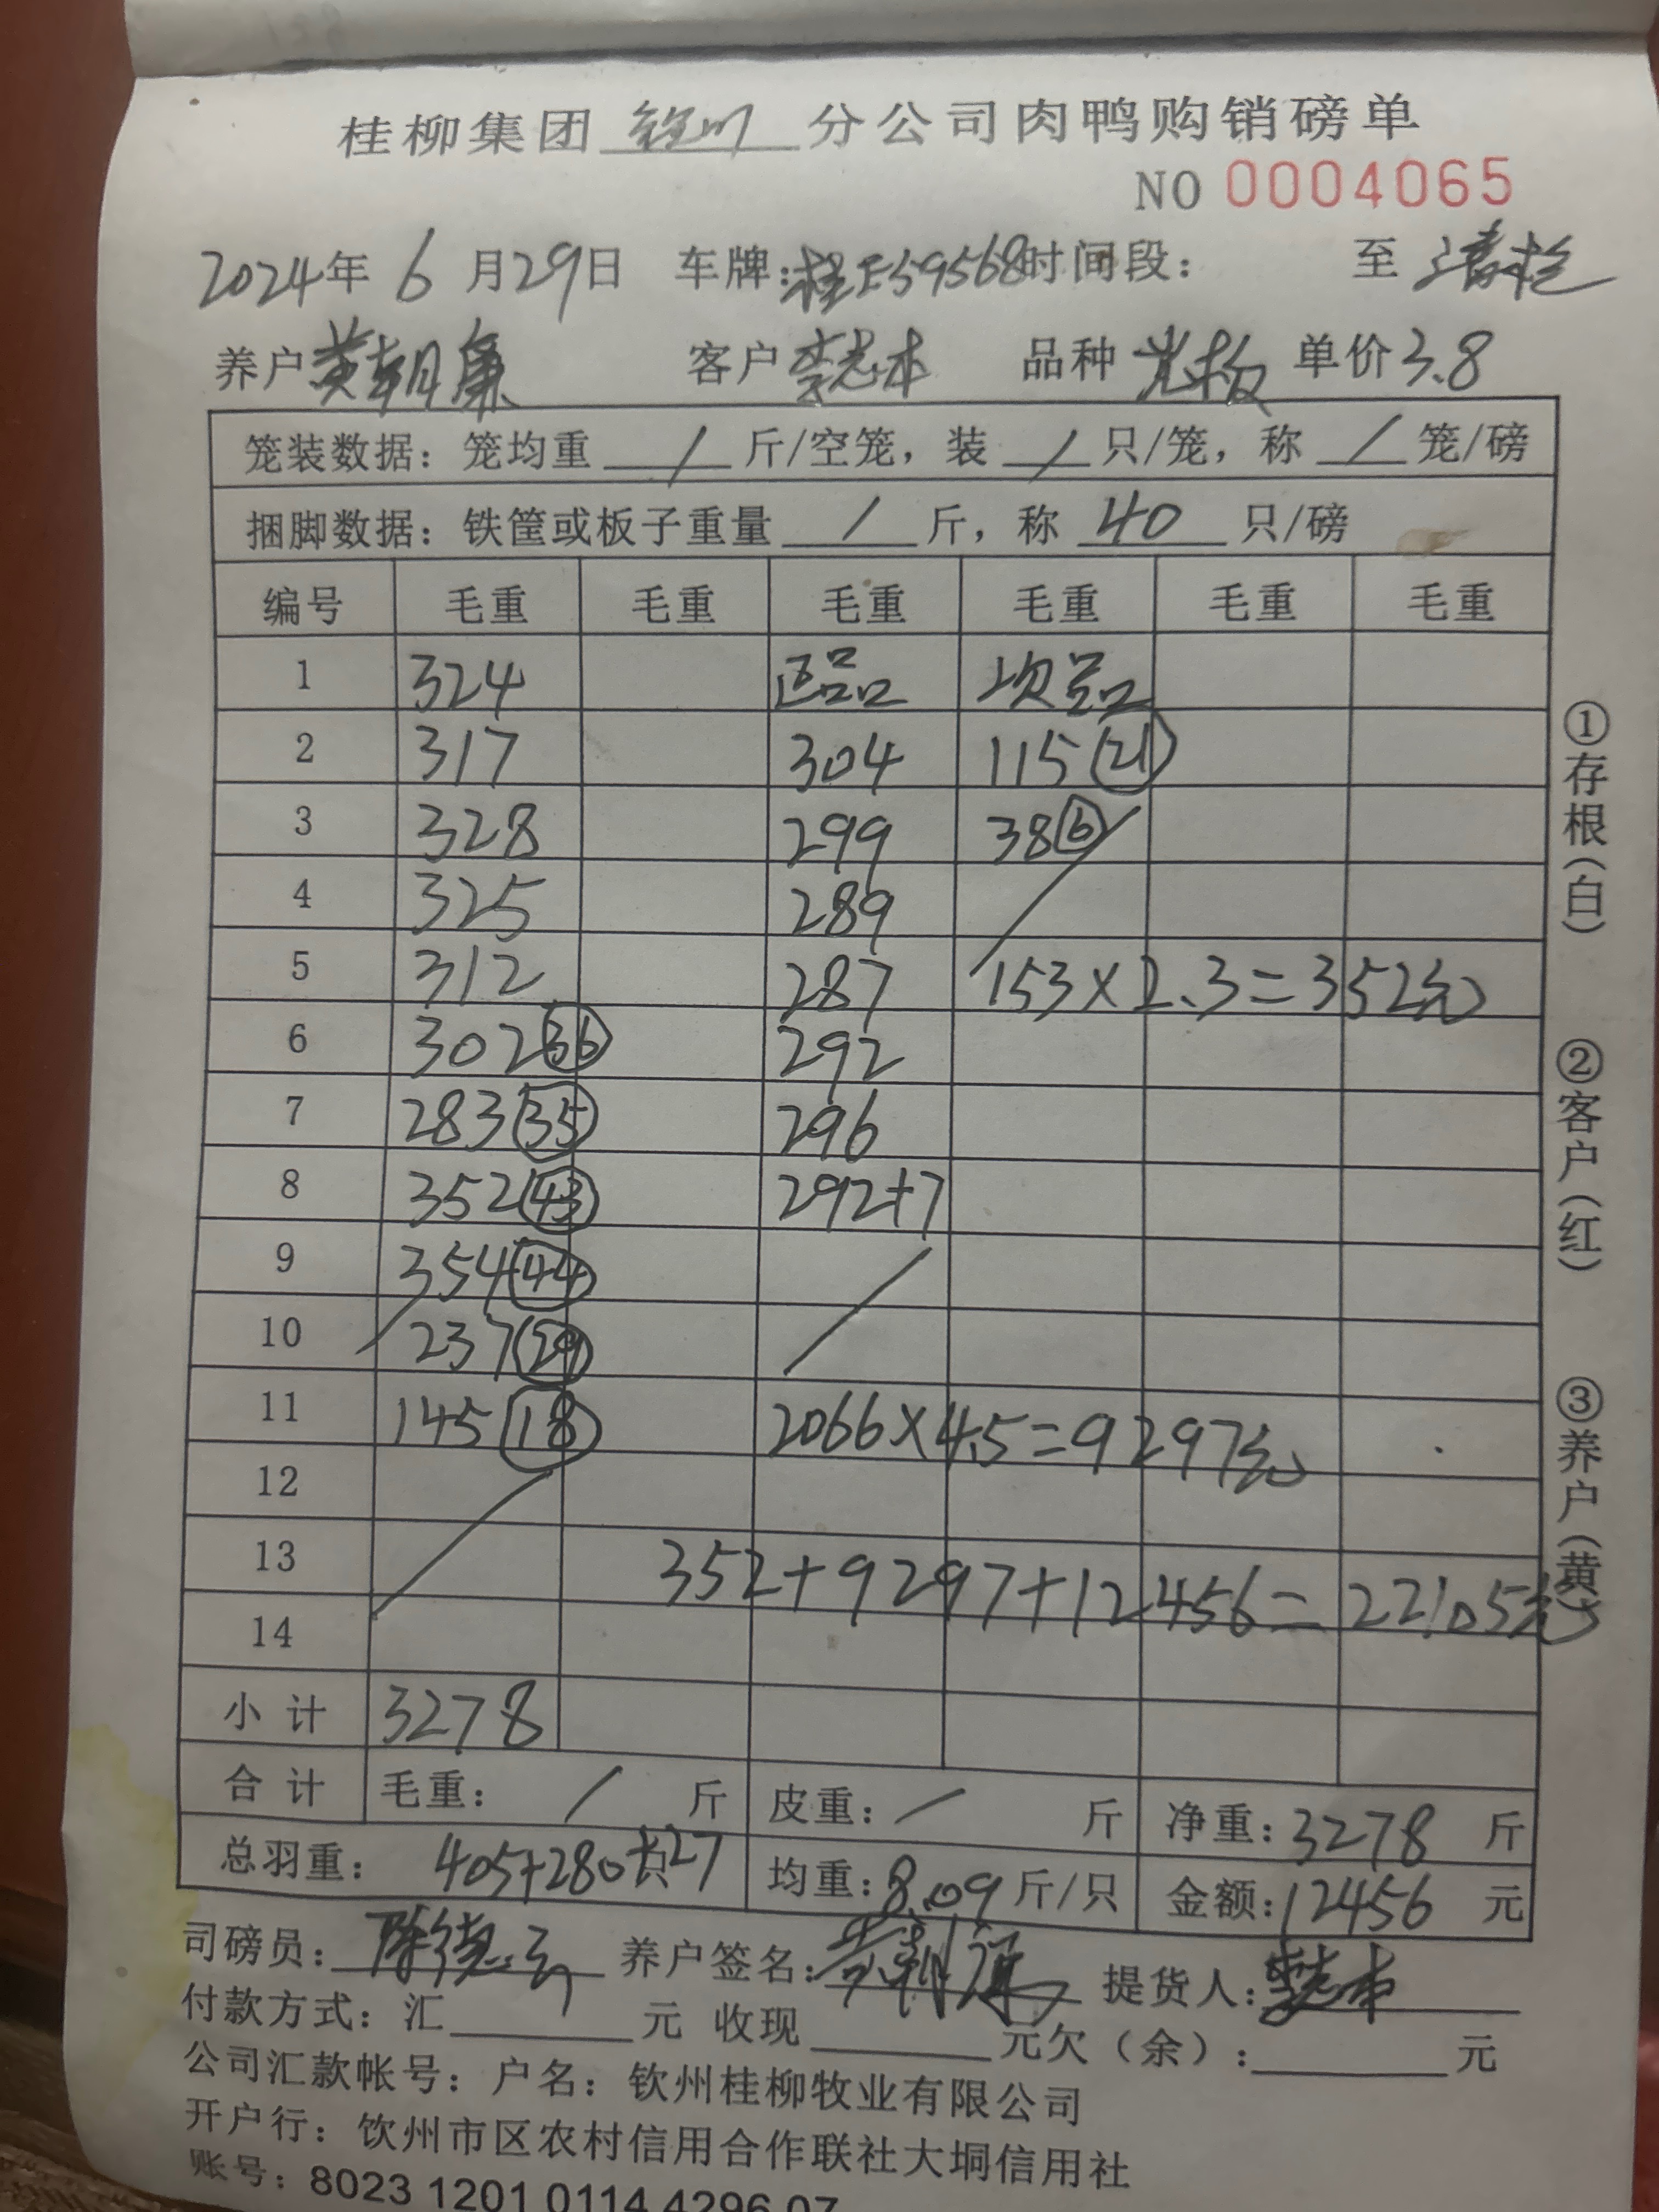 桂柳集团 钦州 分公司肉鸭购销磅单
NO 0004065
2024年 6 月29日 车牌:桂E59568时间段: 至 清栏
养户 黄朝廉 客户 李志本 品种 光板 单价3.8
笼装数据: 笼均重 / 斤/空笼, 装 / 只/笼, 称 / 笼/磅
捆脚数据: 铁筐或板子重量 / 斤, 称 40 只/磅
编号 毛重 毛重 毛重 毛重 毛重 毛重
1 324 正品 次品
2 317 304 115(21)
3 328 299 38(6)
4 325 289
5 312 287 153×2.3=352元
6 302(36) 292
7 283(35) 296
8 352(43) 292+7
9 354(44)
10 237(29)
11 145(18) 2066×4.5=9297元
12
13 352+9297+12456=22105元
14
小计 3278
合计 毛重: / 斤 皮重: / 斤 净重: 3278 斤
总羽重: 405+280+27 只 均重: 8.09 斤/只 金额: 12456 元
司磅员: 陈德 养户签名: 黄朝廉 提货人: 李志本
付款方式: 汇 元 收现 元欠(余): 元
公司汇款帐号: 户名: 钦州桂柳牧业有限公司
开户行: 钦州市区农村信用合作联社大垌信用社
账号: 8023 1201 0114 4296 07
①存根(白) ②客户(红) ③养户(黄)